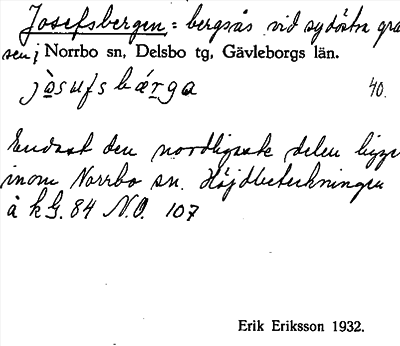 Josefsbergen = bergsås vid sydöstra grä
sen i Norrbo sn, Delsbo tg, Gävleborgs län.
jòsufsbærga 40.
Endast den nordligaste delen ligge
inom Norrbo sn. Höjdbeteckningen
å kG. 84 N.O. 107
Erik Eriksson 1932.